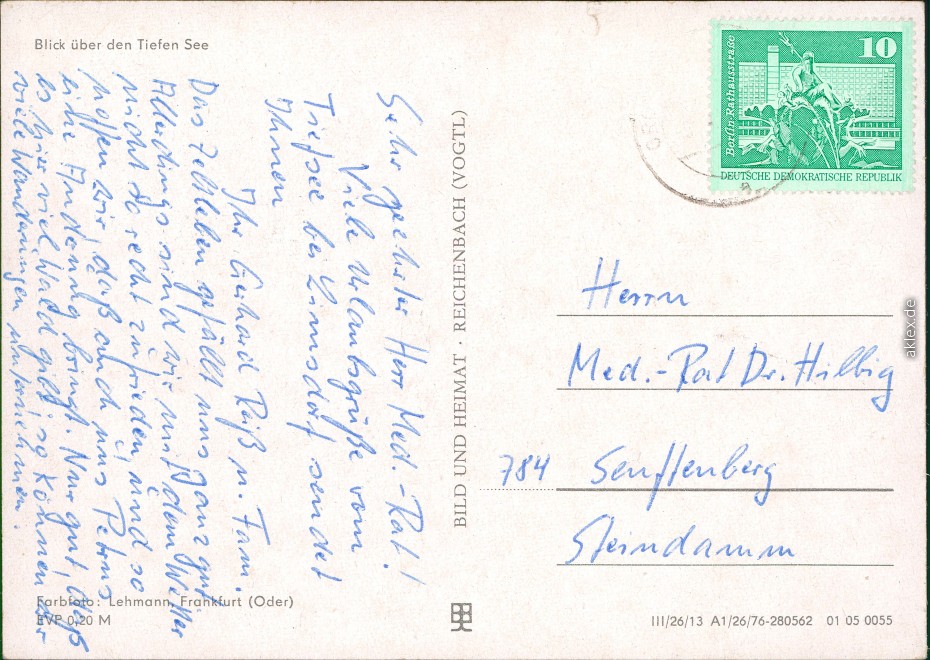 Blick über den Tiefen See
Sehr geehrter Herr Med.-Rat!
Viele Urlaubsgrüße vom
Tiefsee bei Limsdorf sendet
Ihnen
Ihr Gerhard Reiß u. Fam.
Das Zeltleben gefällt uns ganz gut.
Allerdings sind wir mit dem Wetter
nicht so recht zufrieden und so
hoffen wir, daß auch uns Petrus
eine Änderung bringt. Nur gut, daß
es hier viel Wald gibt, so können wir
viele Wanderungen unternehmen.
Farbfoto: Lehmann, Frankfurt (Oder)
EVP 0,20 M
BILD UND HEIMAT · REICHENBACH (VOGTL)
10
Berlin · Rathausstraße
DEUTSCHE DEMOKRATISCHE REPUBLIK
Herrn
Med.-Rat Dr. Hilbig
784 Senftenberg
Steindamm
III/26/13 A1/26/76-280562 01 05 0055
aklex.de